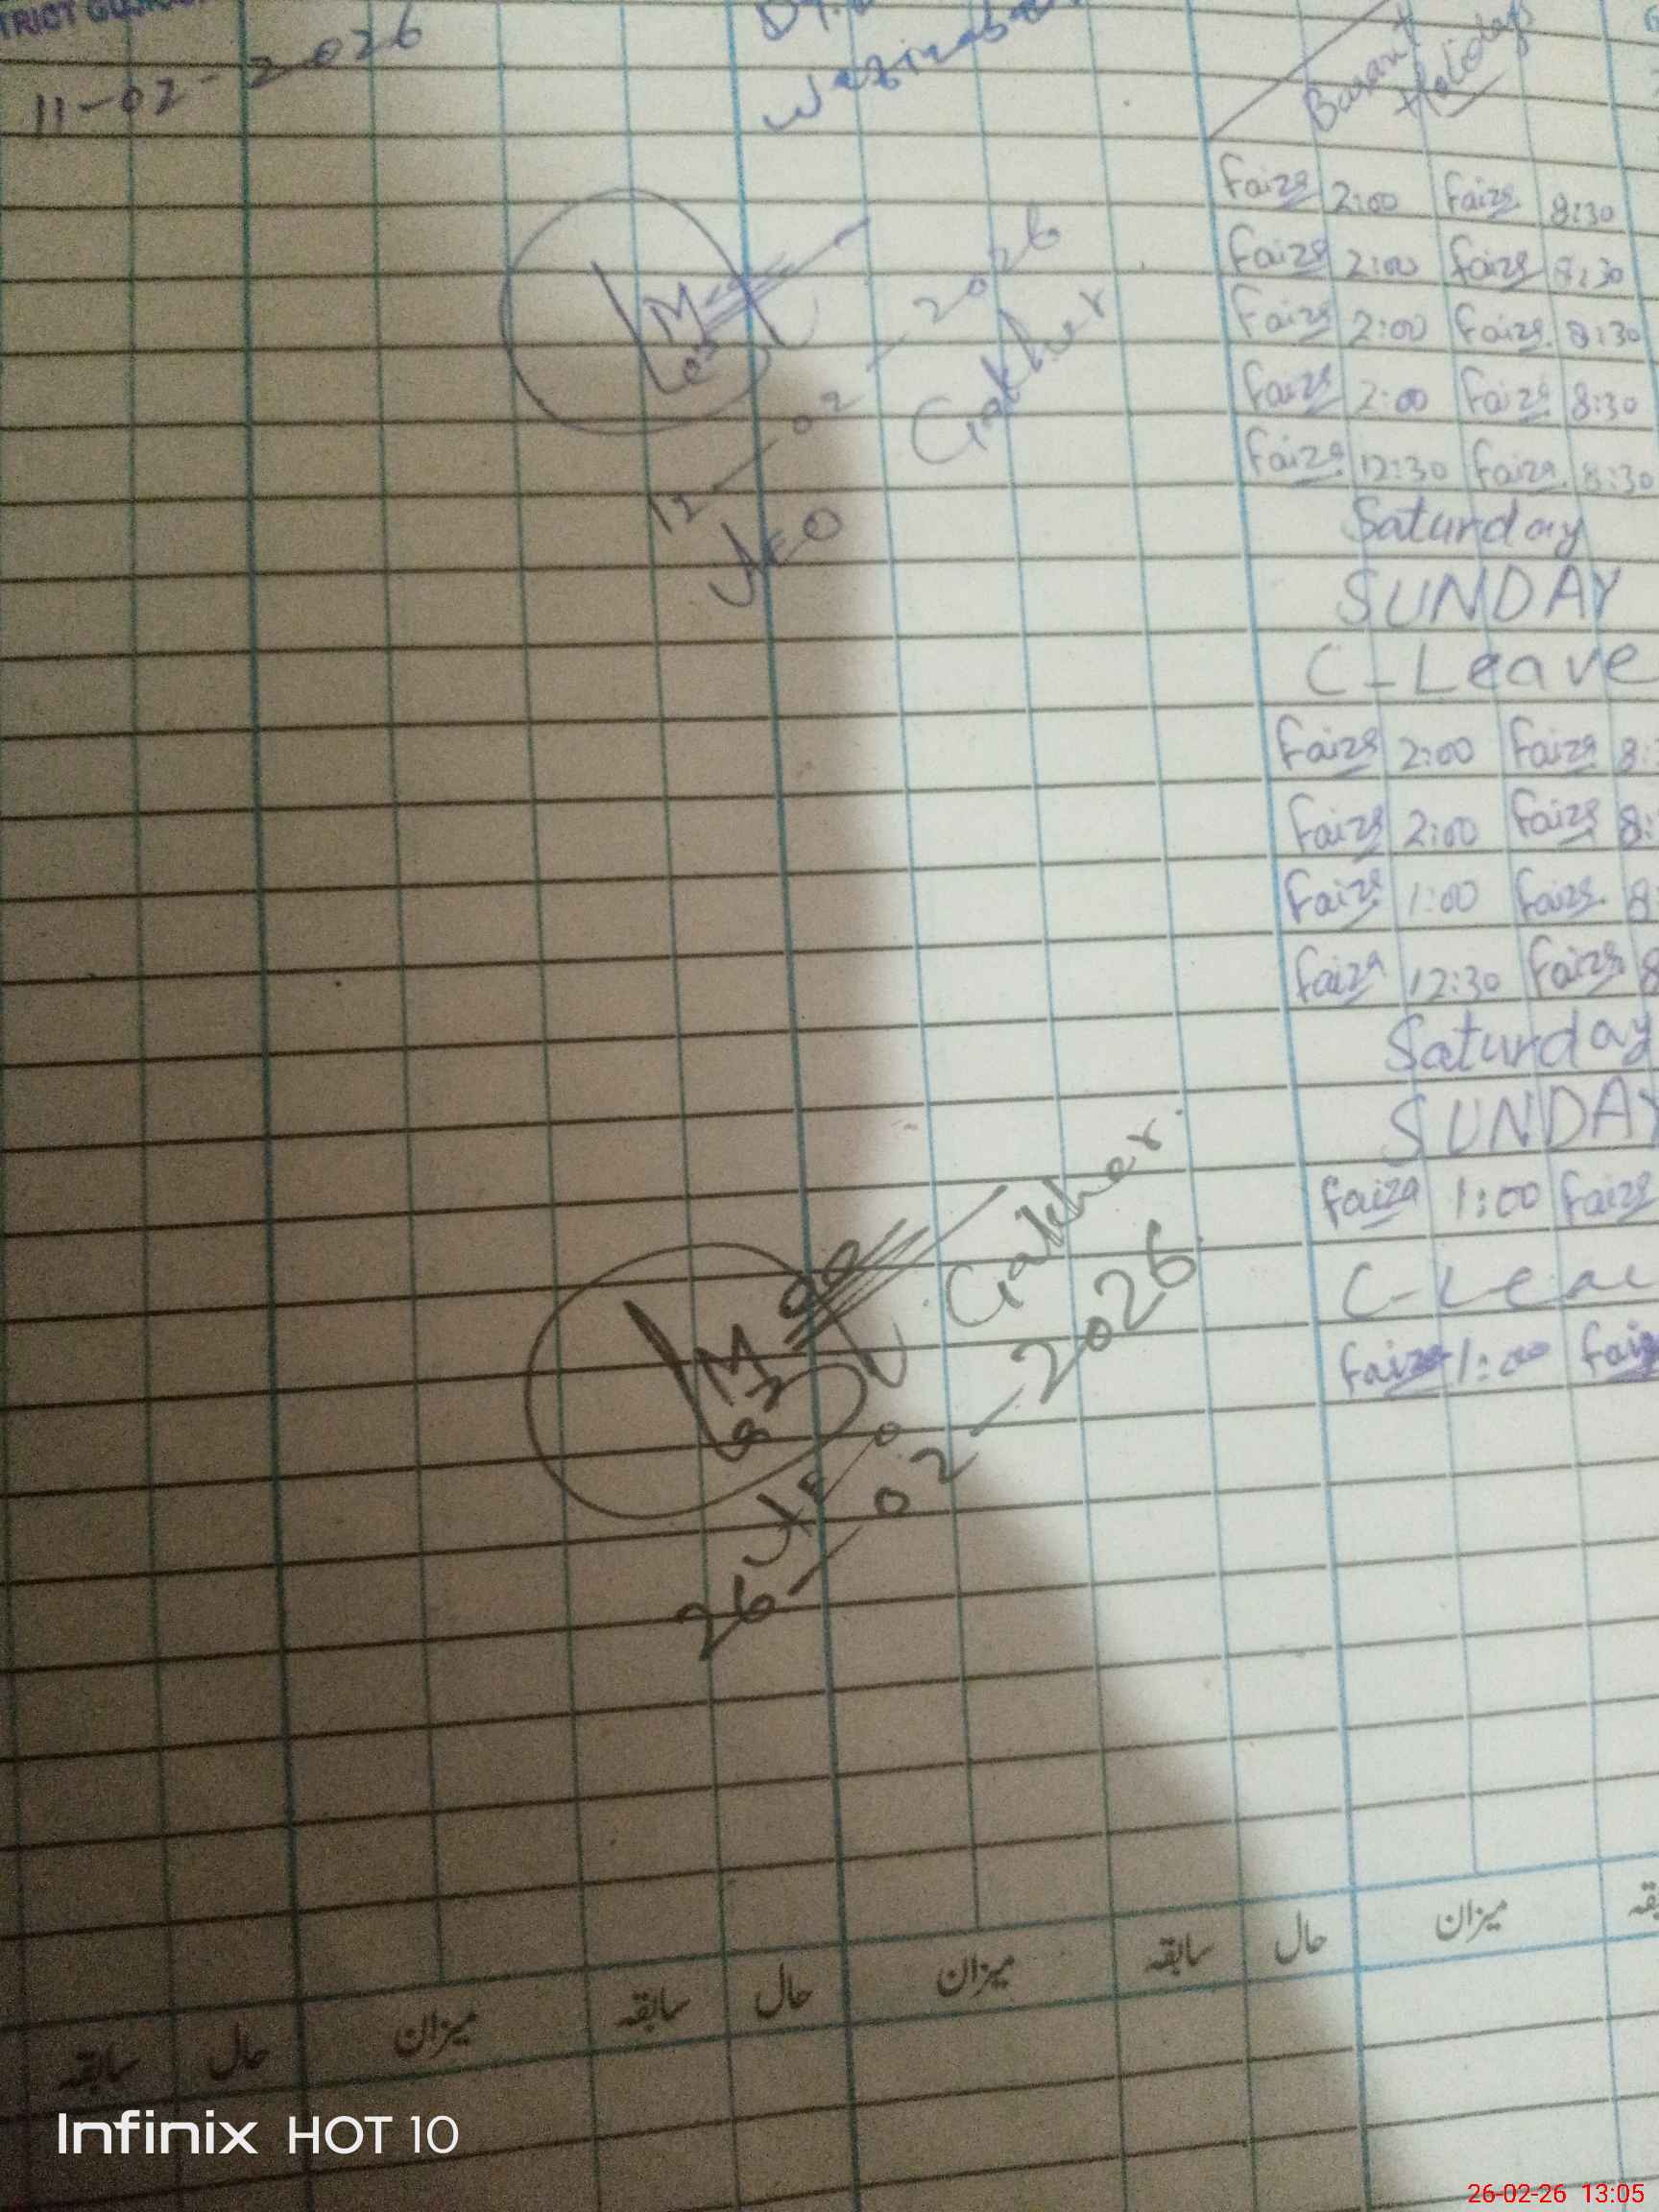 TRICT
11-02-2026
Basant
Holidays
Faiza 2:00 Faiza 8:30
Faiza 2:00 Faiza 8:30
Faiza 2:00 Faiza 8:30
Faiza 2:00 Faiza 8:30
Faiza 12:30 Faiza 8:30
12-02-2026
Gakher
AEO
Saturday
SUNDAY
C-Leave
Faiza 2:00 Faiza 8:
Faiza 2:00 Faiza 8:
Faiza 1:00 Faiza 8
Faiza 12:30 Faiza 8
Saturday
SUNDAY
Faiza 1:00 Faiza
C-Lea
Faiza 1:00 Fai
Gakher.
AEO
26-02-2026
سابقہ حال میزان سابقہ حال میزان سابقہ حال میزان
Infinix HOT 10
26-02-26 13:05